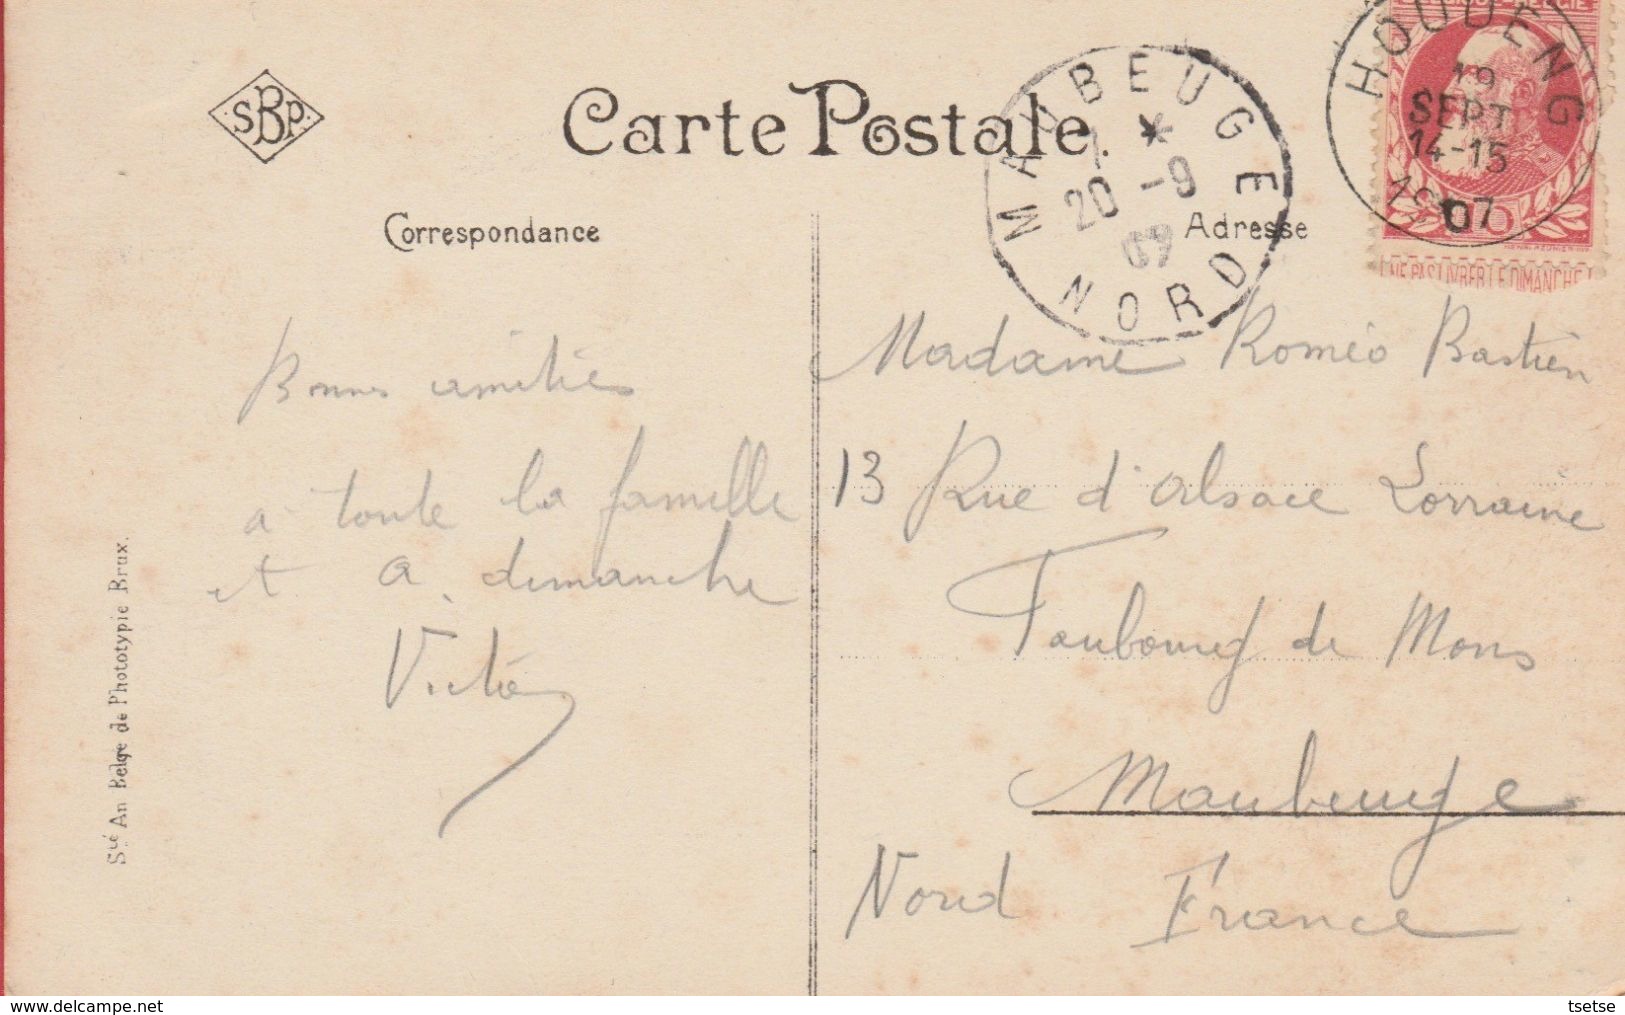 SBP
Carte Postale.
MAUBEUGE
20 -9
07
NORD
HOUDENG
19
SEPT
14-15
07
NE PAS LIVRER LE DIMANCHE
Correspondance
Adresse
Bonnes amitiés
à toute la famille
et à dimanche
Madame Roméo Bastien
13 Rue d'Alsace Lorraine
Faubourg de Mons
Maubeuge
Nord France
Sté An Belge de Phototypie Brux.
www.delcampe.net
tsetse